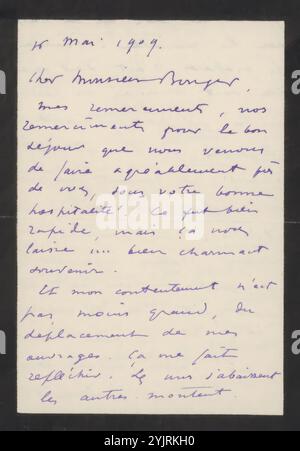 15 Mai 1909.
Cher Monsieur Bonger,
Mes remerciments, nos
remerciments pour le bon
séjour que nous venons
de faire agréablement près
de vous, sous votre bonne
hospitalité! Ce fut bien
rapide, mais ça nous
laisse un bien charmant
souvenir.
Et mon contentement n'est
pas moins grand, du
déplacement de mes
ouvrages. Ça me fait
réfléchir. Les uns s'abaissent
les autres montent.
alamy
Image ID: 2YJRKH0
www.alamy.com